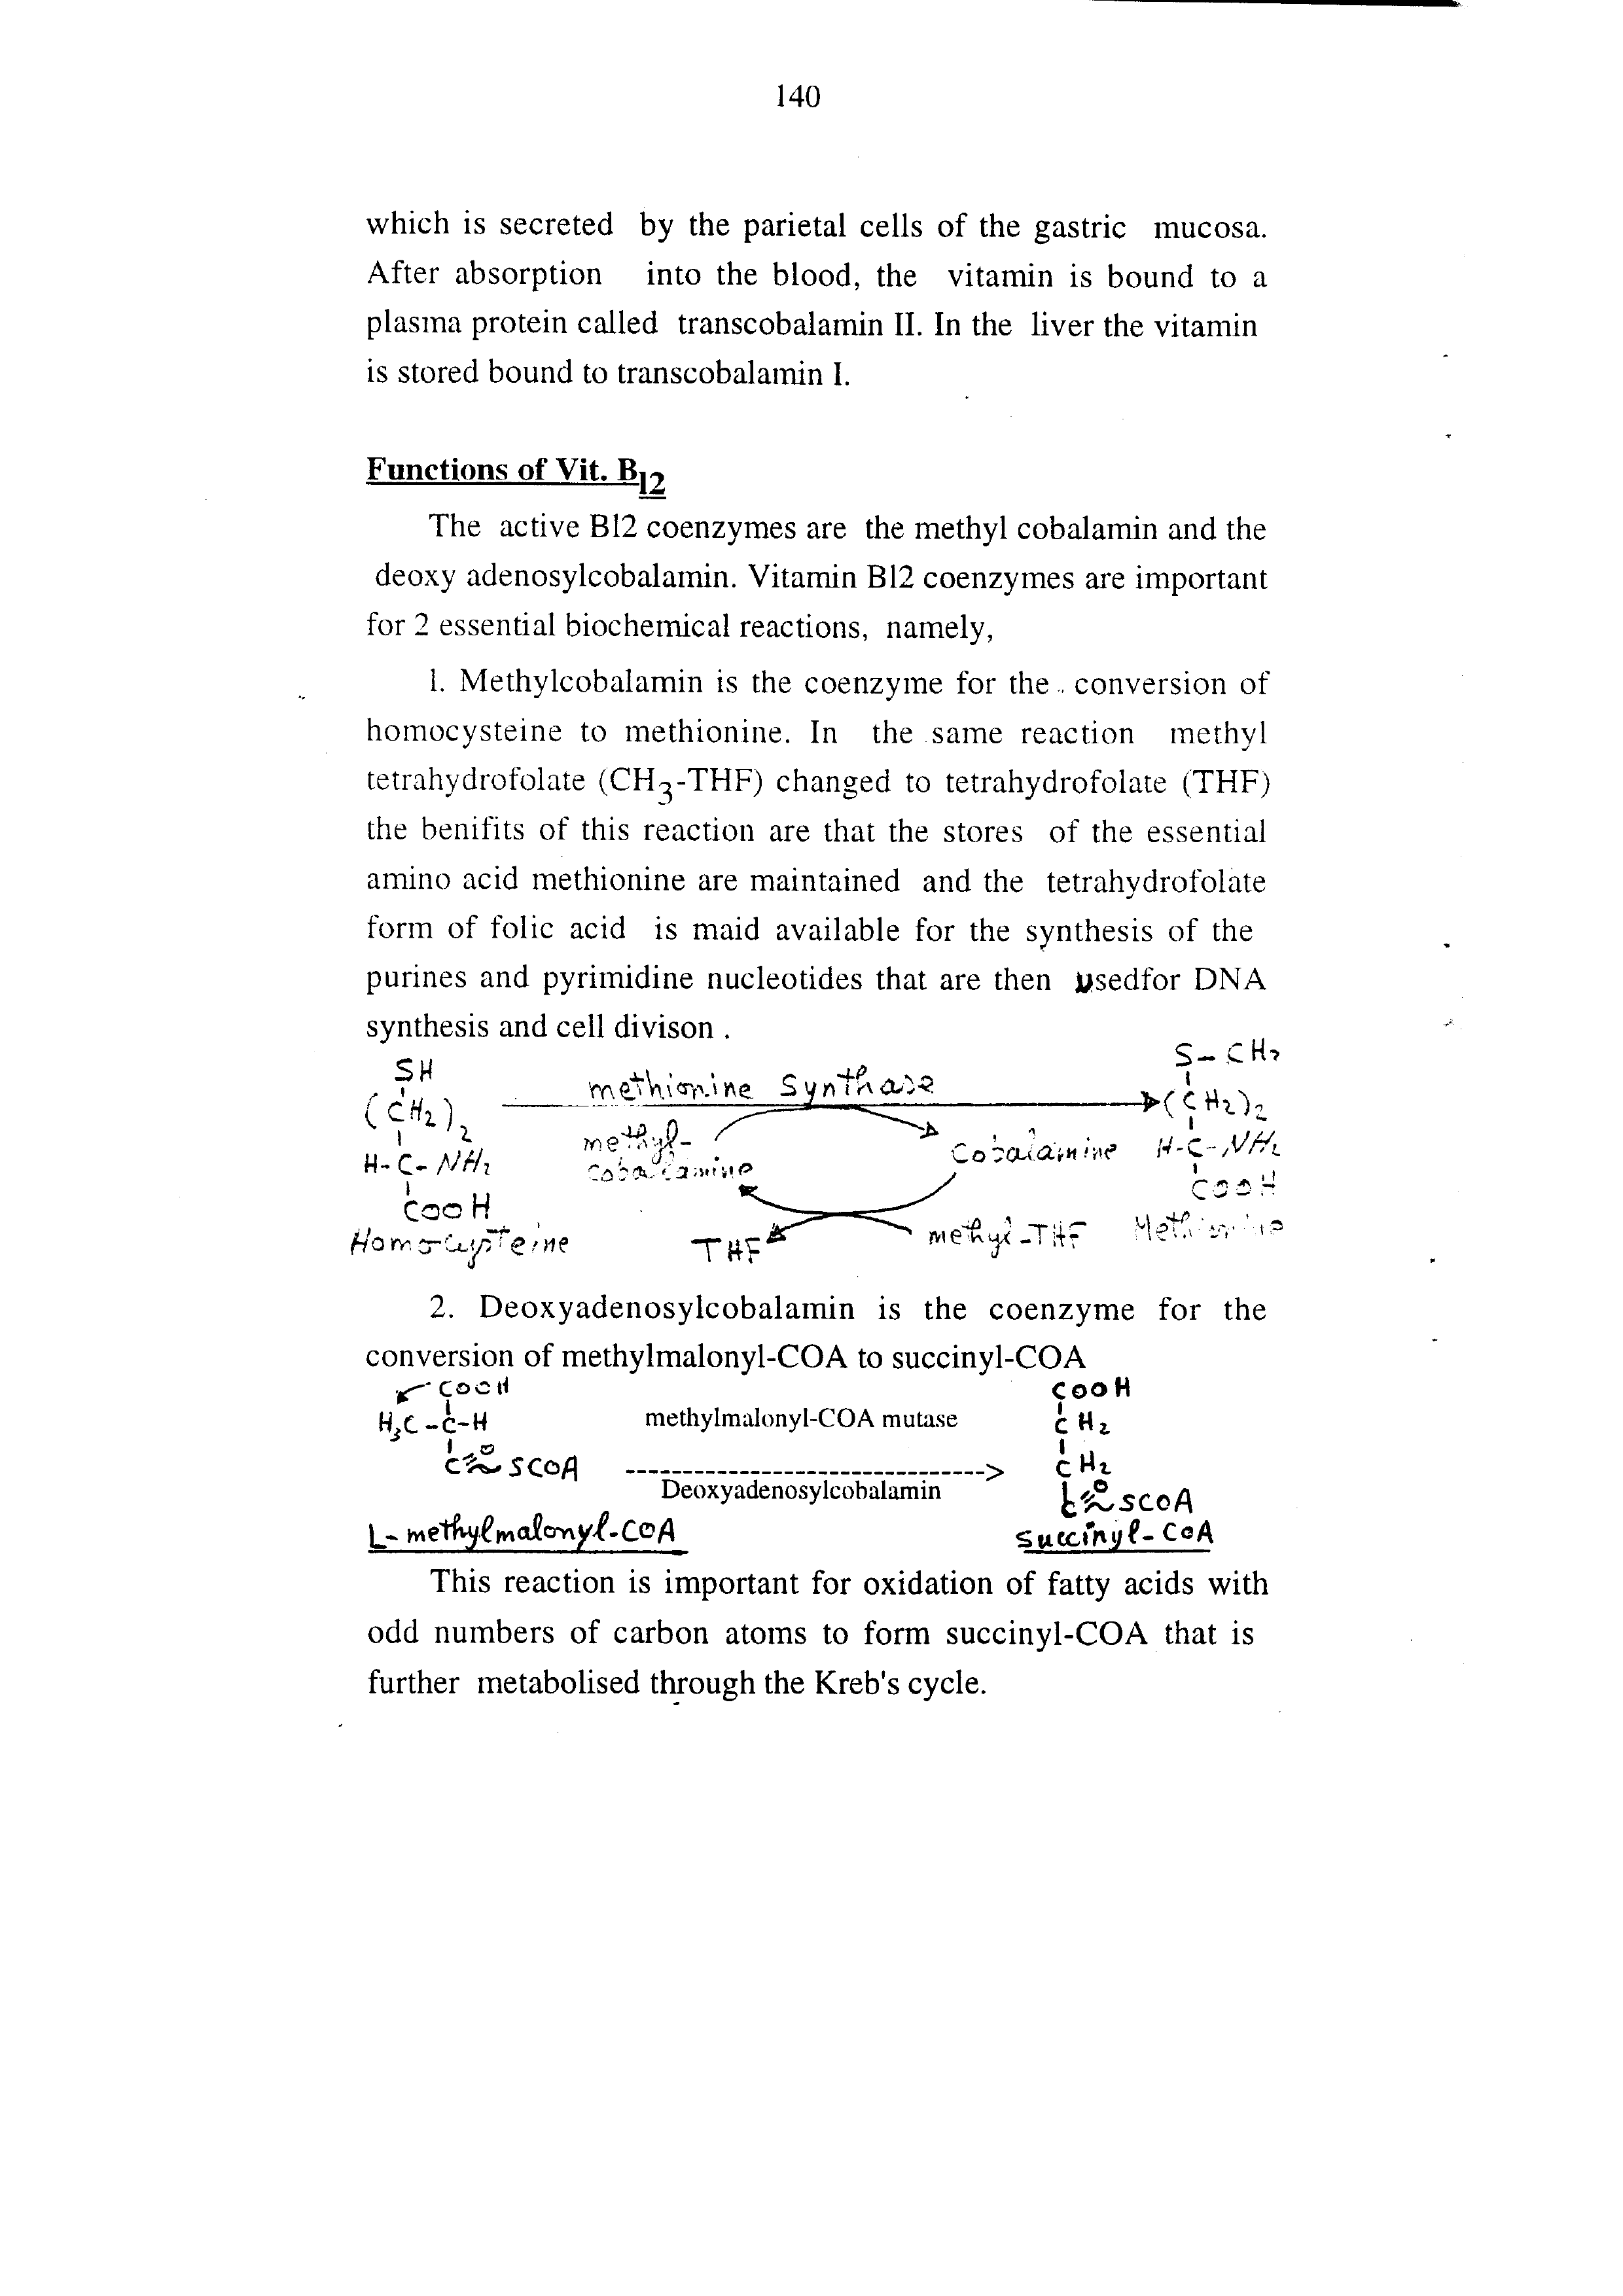 140
which is secreted by the parietal cells of the gastric mucosa.
After absorption into the blood, the vitamin is bound to a
plasma protein called transcobalamin II. In the liver the vitamin
is stored bound to transcobalamin I.
Functions of Vit. B12
The active B12 coenzymes are the methyl cobalamin and the
deoxy adenosylcobalamin. Vitamin B12 coenzymes are important
for 2 essential biochemical reactions, namely,
1. Methylcobalamin is the coenzyme for the conversion of
homocysteine to methionine. In the same reaction methyl
tetrahydrofolate (CH3-THF) changed to tetrahydrofolate (THF)
the benifits of this reaction are that the stores of the essential
amino acid methionine are maintained and the tetrahydrofolate
form of folic acid is maid available for the synthesis of the
purines and pyrimidine nucleotides that are then usedfor DNA
synthesis and cell divison .
SH S-CH3
(CH2)2 methionine synthase (CH2)2
H-C-NH2 methyl-cobalamine Cobalamine H-C-NH2
COOH COOH
Homocysteine THF methyl-THF Methionine
2. Deoxyadenosylcobalamin is the coenzyme for the
conversion of methylmalonyl-COA to succinyl-COA
COOH COOH
H3C-C-H methylmalonyl-COA mutase CH2
C=O~SCOA -------------------------------> CH2
Deoxyadenosylcobalamin C=O~SCOA
L-methylmalonyl-COA Succinyl-CoA
This reaction is important for oxidation of fatty acids with
odd numbers of carbon atoms to form succinyl-COA that is
further metabolised through the Kreb's cycle.